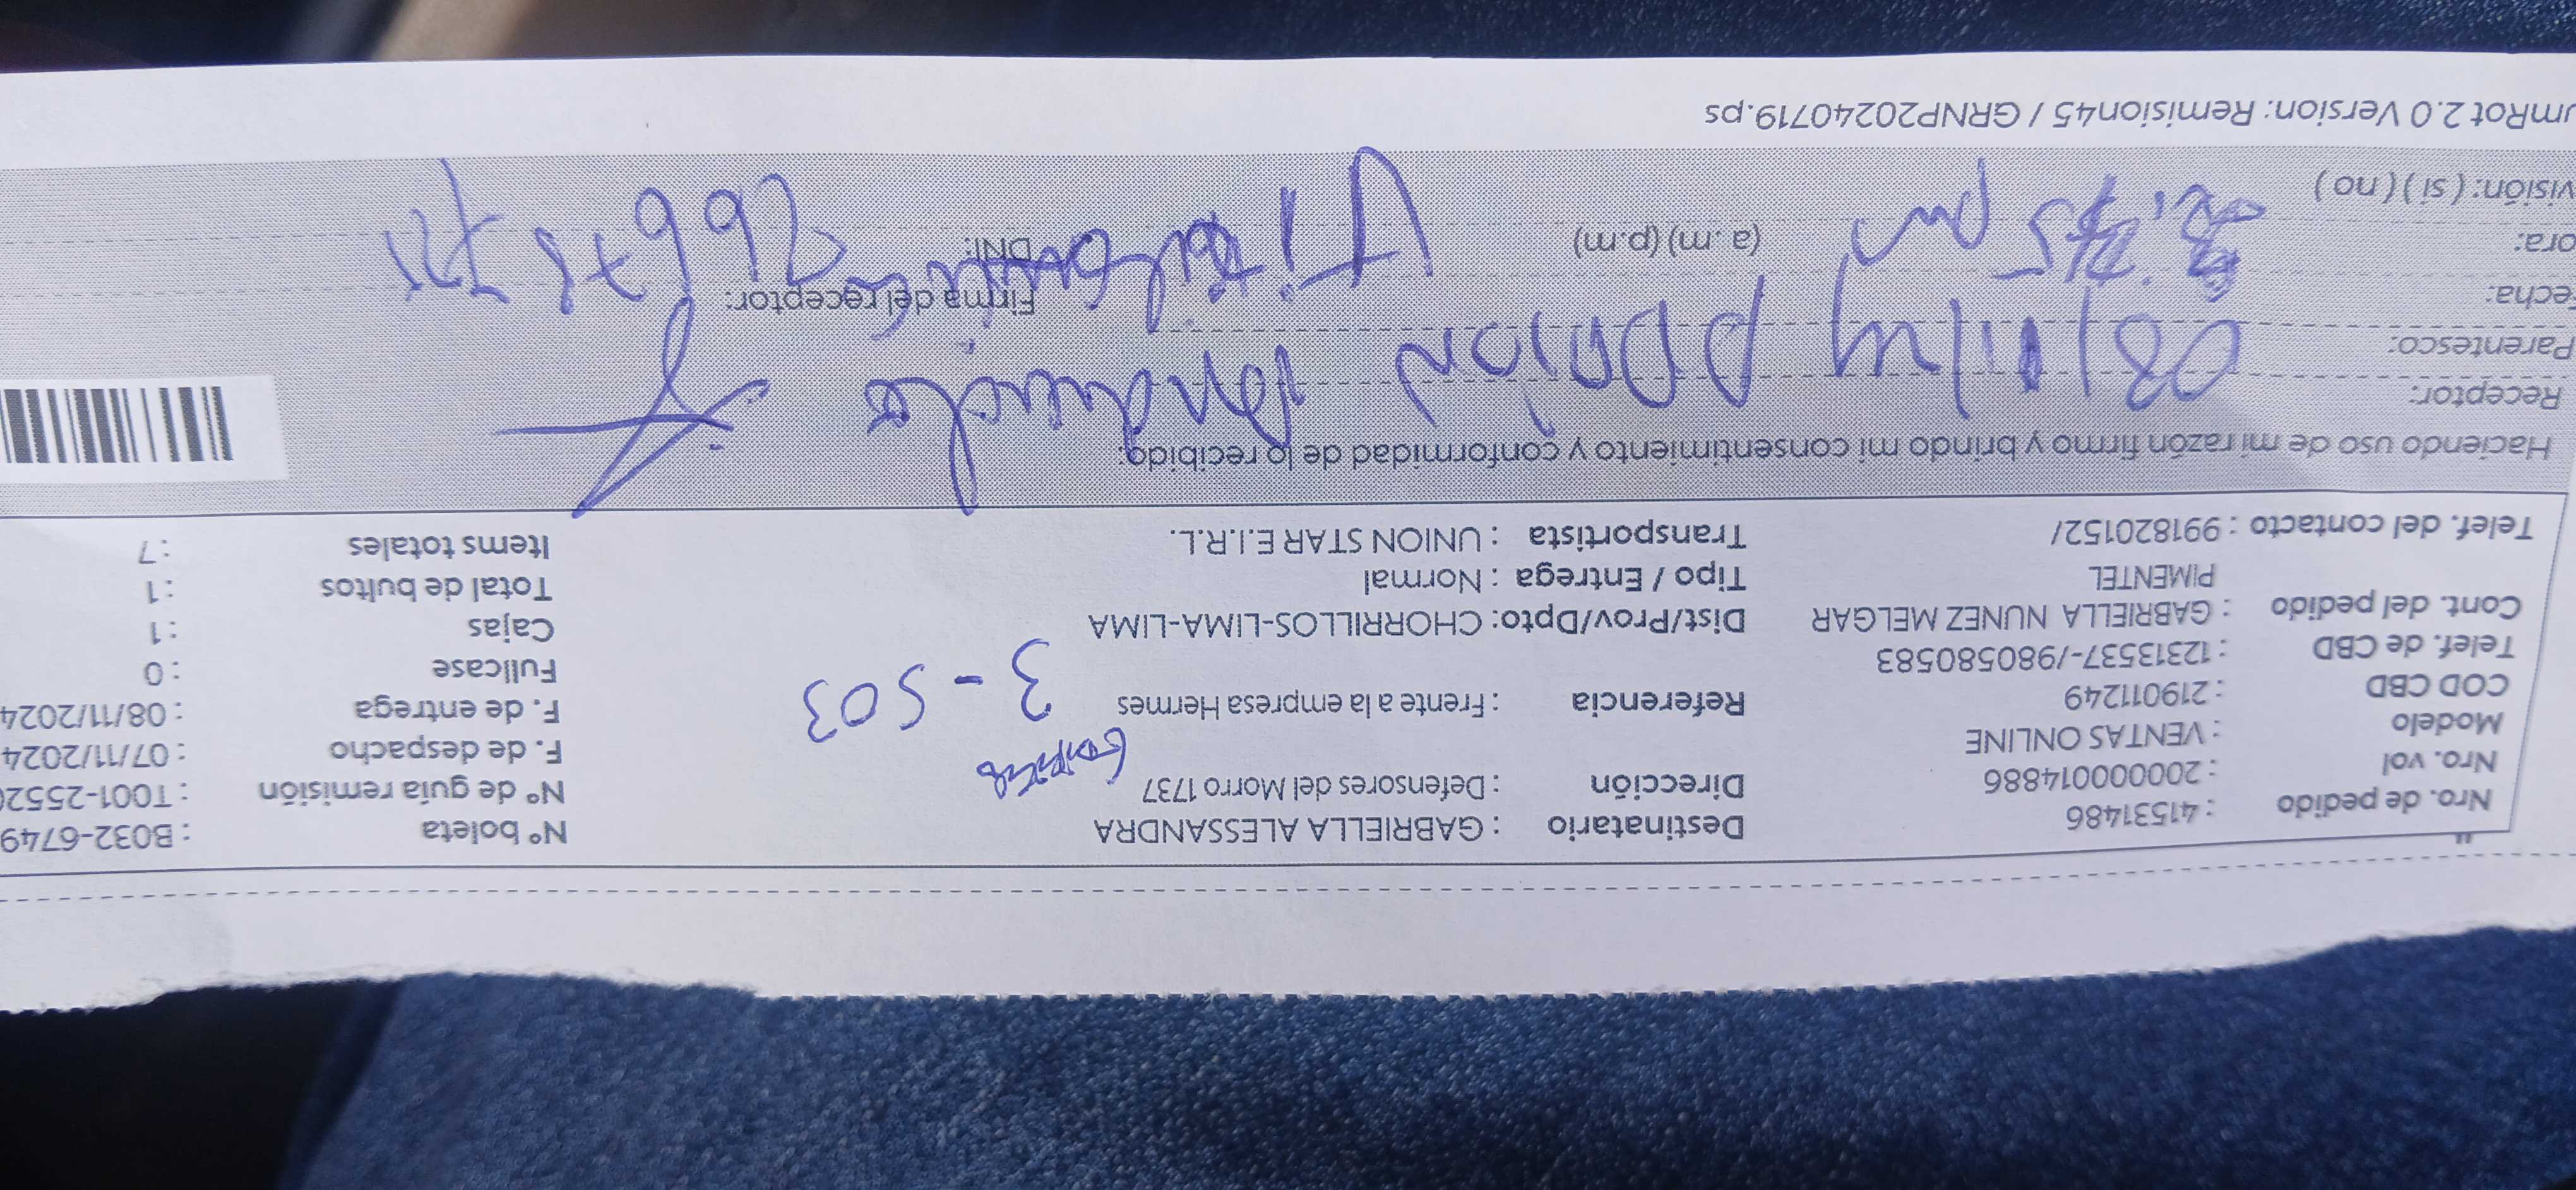 Nro. de pedido : 41531486 Destinatario : GABRIELLA ALESSANDRA N° boleta : B032-6749
Nro. vol : 2000000014886 Dirección : Defensores del Morro 1737 N° de guía remisión : T001-2552
Modelo : VENTAS ONLINE F. de despacho : 07/11/2024
COD CBD : 219011249 Referencia : Frente a la empresa Hermes 3 - 503 F. de entrega : 08/11/2024
Telef. de CBD : 12313537-/980580583 Fullcase : 0
Cont. del pedido : GABRIELLA NUNEZ MELGAR Dist/Prov/Dpto: CHORRILLOS-LIMA-LIMA Cajas : 1
PIMENTEL Tipo / Entrega : Normal Total de bultos : 1
Telef. del contacto : 991820152/ Transportista : UNION STAR E.I.R.L. Items totales : 7
Haciendo uso de mi razón firmo y brindo mi consentimiento y conformidad de lo recibido:
Receptor:
Parentesco: 08/11/24
Fecha: Firma del receptor:
ora: pm (a. m) (p.m) DNI:
visión: ( si ) ( no )
mRot 2.0 Version: Remision45 / GRNP20240719.ps